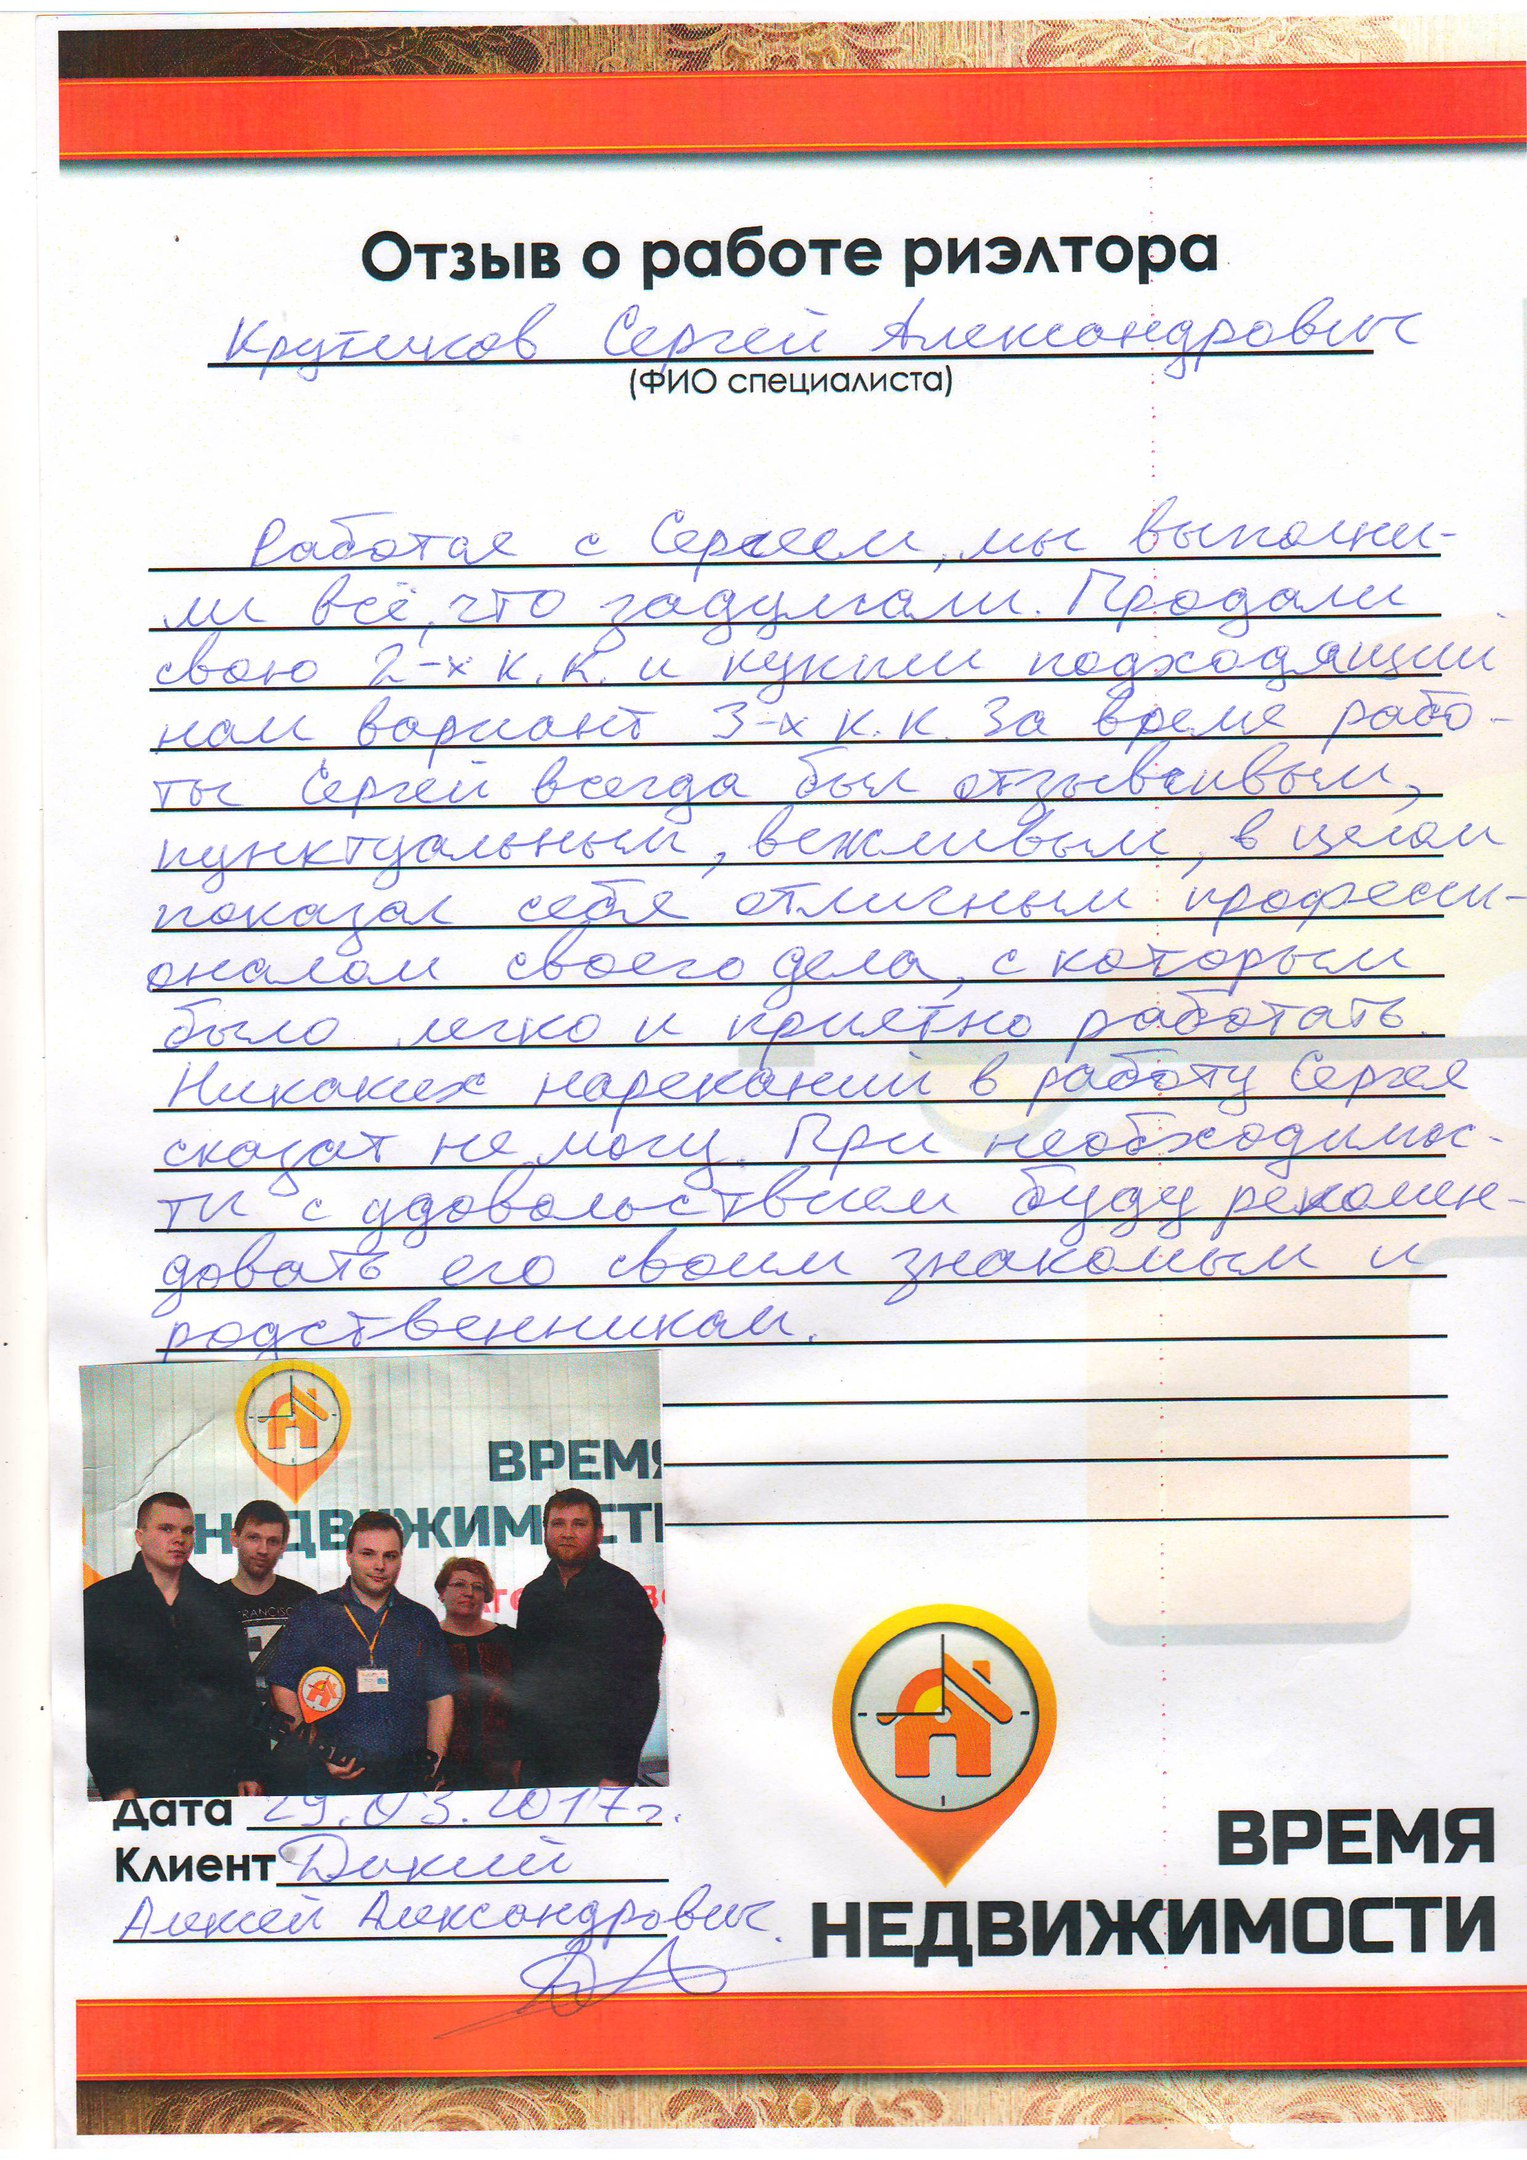 Отзыв о работе риэлтора
Крутицков Сергей Александрович
(ФИО специалиста)
Работая с Сергеем, мы выполни-
ли всё, что задумали. Продали
свою 2-х к.к. и купили подходящий
нам вариант 3-х к.к. За время рабо-
ты Сергей всегда был отзывчивым,
пунктуальным, вежливым, в целом
показал себя отличным професси-
оналом своего дела, с которым
было легко и приятно работать.
Никаких нареканий в работу Сергея
сказат не могу. При необходимос-
ти с удовольствием буду рекомен-
довать его своим знакомым и
родственникам.
ВРЕМЯ
НЕДВИЖИМОСТИ
FRANCISC
Дата 29.03.2017г.
Клиент Дикий
Алексей Александрович.
ВРЕМЯ
НЕДВИЖИМОСТИ